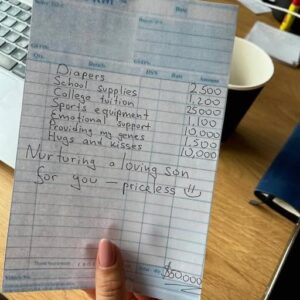 Date
Qty.
Details
HSN
Rate
Amount
Diapers 2,500
School supplies 1,200
College tuition 25000
Sports equipment 1,100
Emotional support 10,000
Providing my genes 1,500
Hugs and kisses 10,000
Nurturing a loving son
for you — priceless
Total
$50000